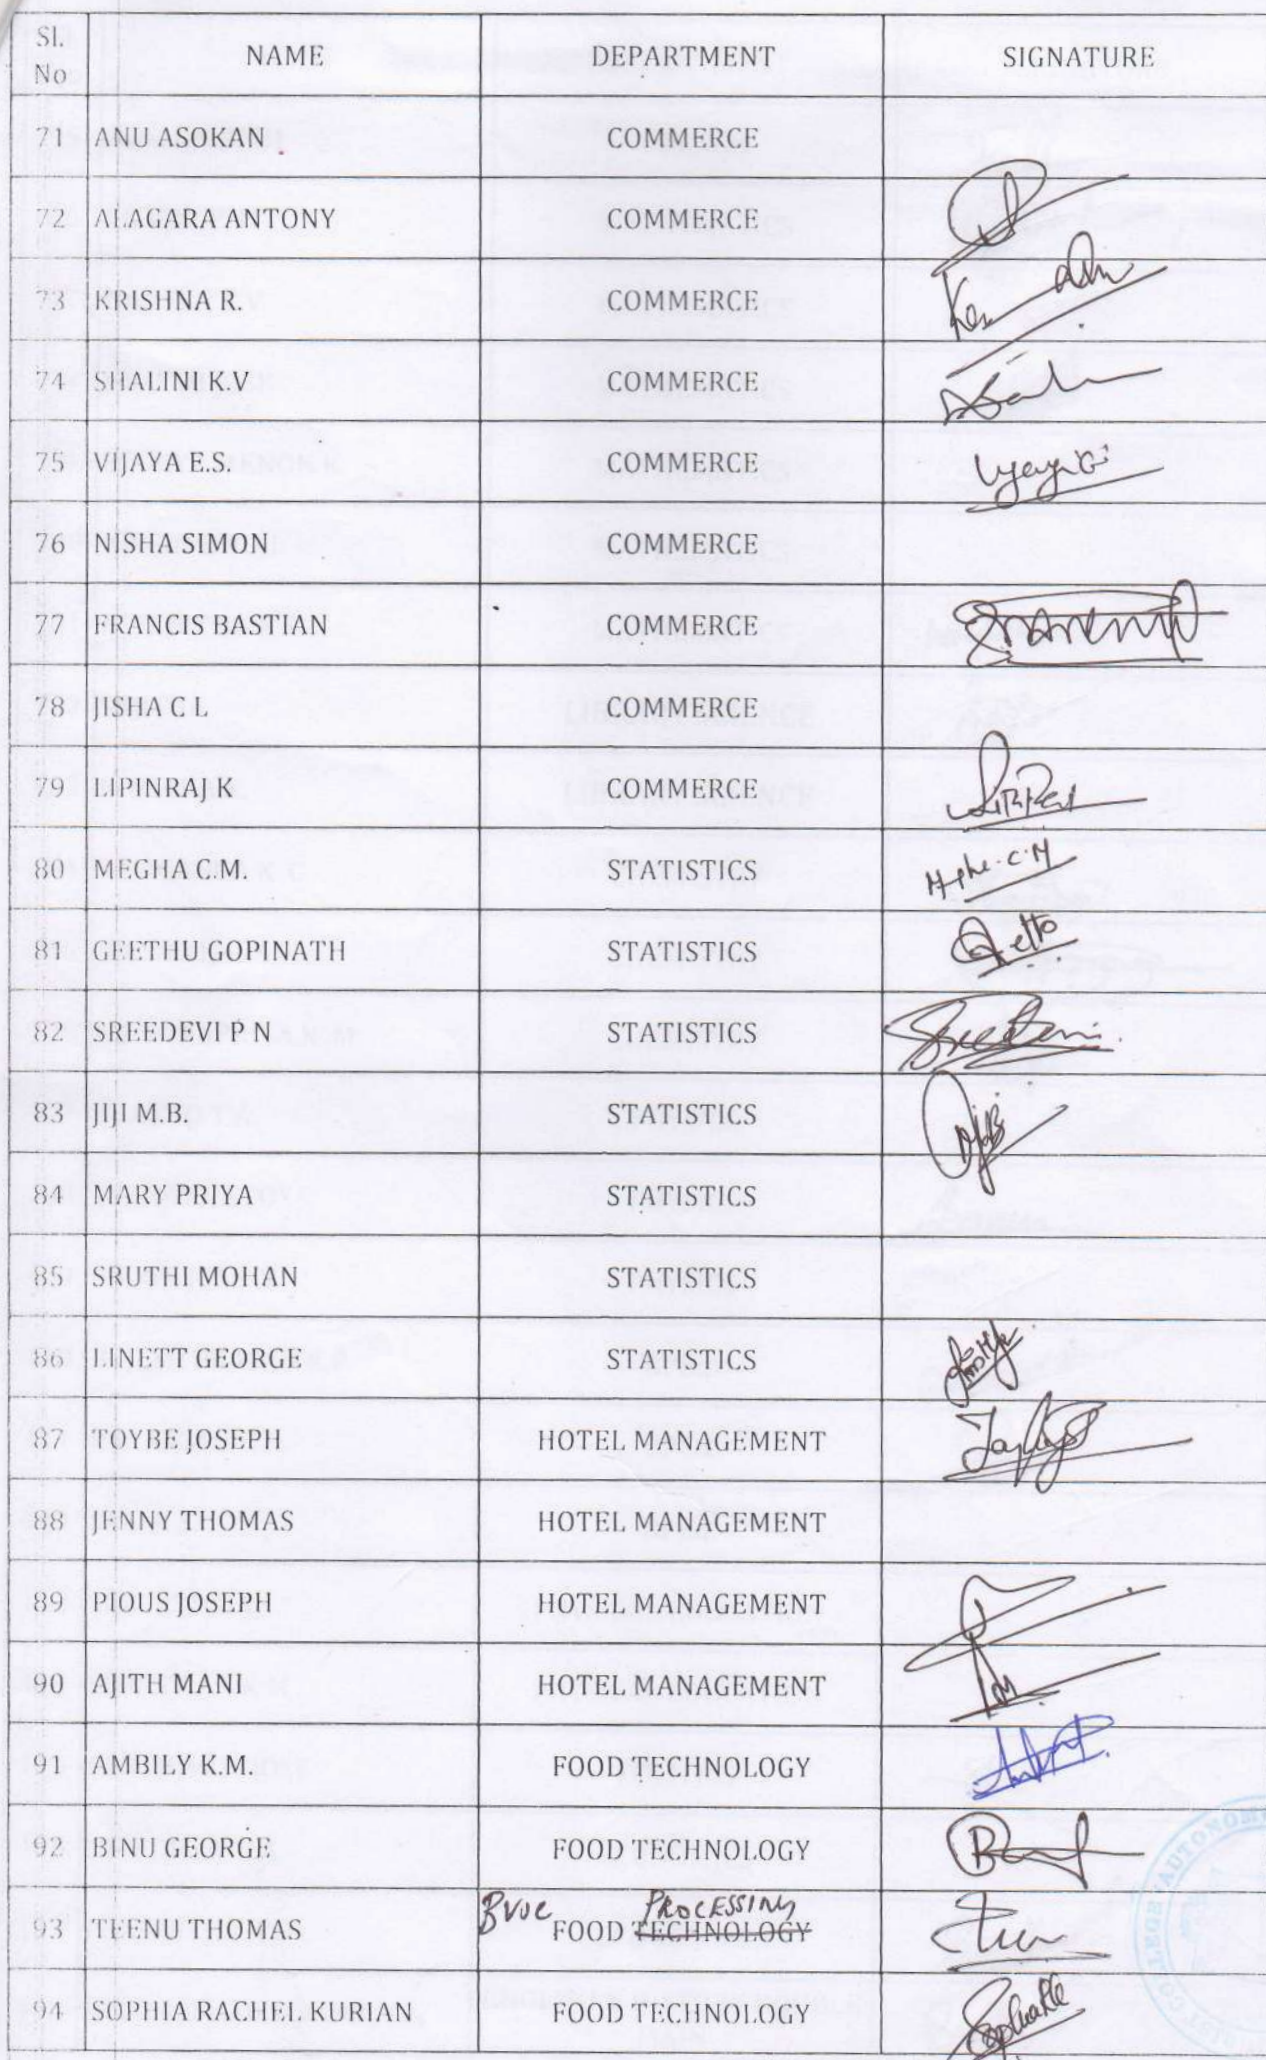 Sl. No NAME DEPARTMENT SIGNATURE
71 ANU ASOKAN COMMERCE
72 ALAGARA ANTONY COMMERCE
73 KRISHNA R. COMMERCE
74 SHALINI K.V COMMERCE
75 VIJAYA E.S. COMMERCE
76 NISHA SIMON COMMERCE
77 FRANCIS BASTIAN COMMERCE
78 JISHA C L COMMERCE
79 LIPINRAJ K COMMERCE
80 MEGHA C.M. STATISTICS
81 GEETHU GOPINATH STATISTICS
82 SREEDEVI P N STATISTICS
83 JIJI M.B. STATISTICS
84 MARY PRIYA STATISTICS
85 SRUTHI MOHAN STATISTICS
86 LINETT GEORGE STATISTICS
87 TOYBE JOSEPH HOTEL MANAGEMENT
88 JENNY THOMAS HOTEL MANAGEMENT
89 PIOUS JOSEPH HOTEL MANAGEMENT
90 AJITH MANI HOTEL MANAGEMENT
91 AMBILY K.M. FOOD TECHNOLOGY
92 BINU GEORGE FOOD TECHNOLOGY
Bvoc PROCESSING
93 TEENU THOMAS FOOD TECHNOLOGY
94 SOPHIA RACHEL KURIAN FOOD TECHNOLOGY